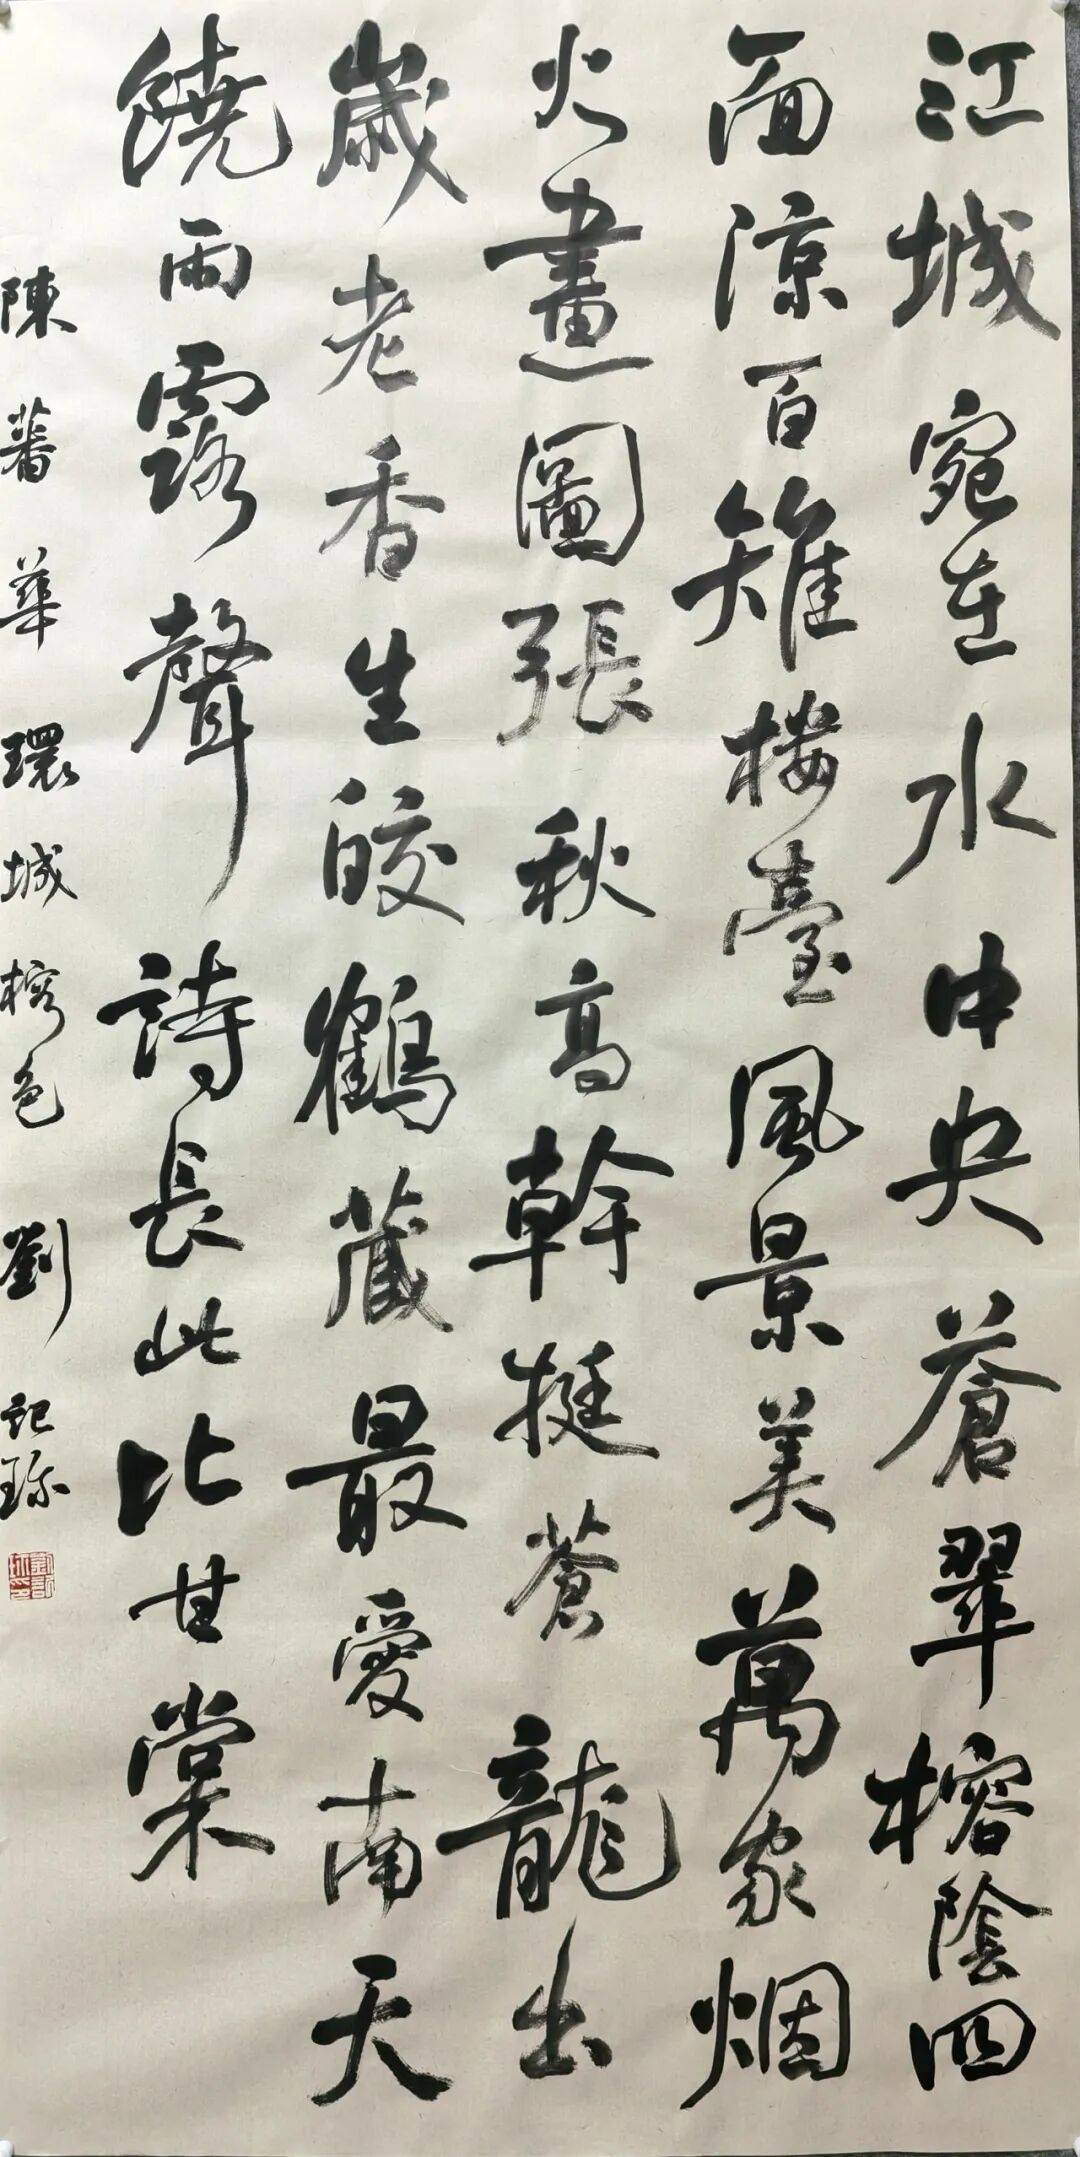 江城宛在水中央蒼翠榕陰四
面涼百雉楼臺風景美萬家烟
火畫圖張秋高幹挺蒼龍出
歲老香生皎鶴藏最愛南天
饒雨露聲詩長此比甘棠
陳蕃華環城榕色劉記珎